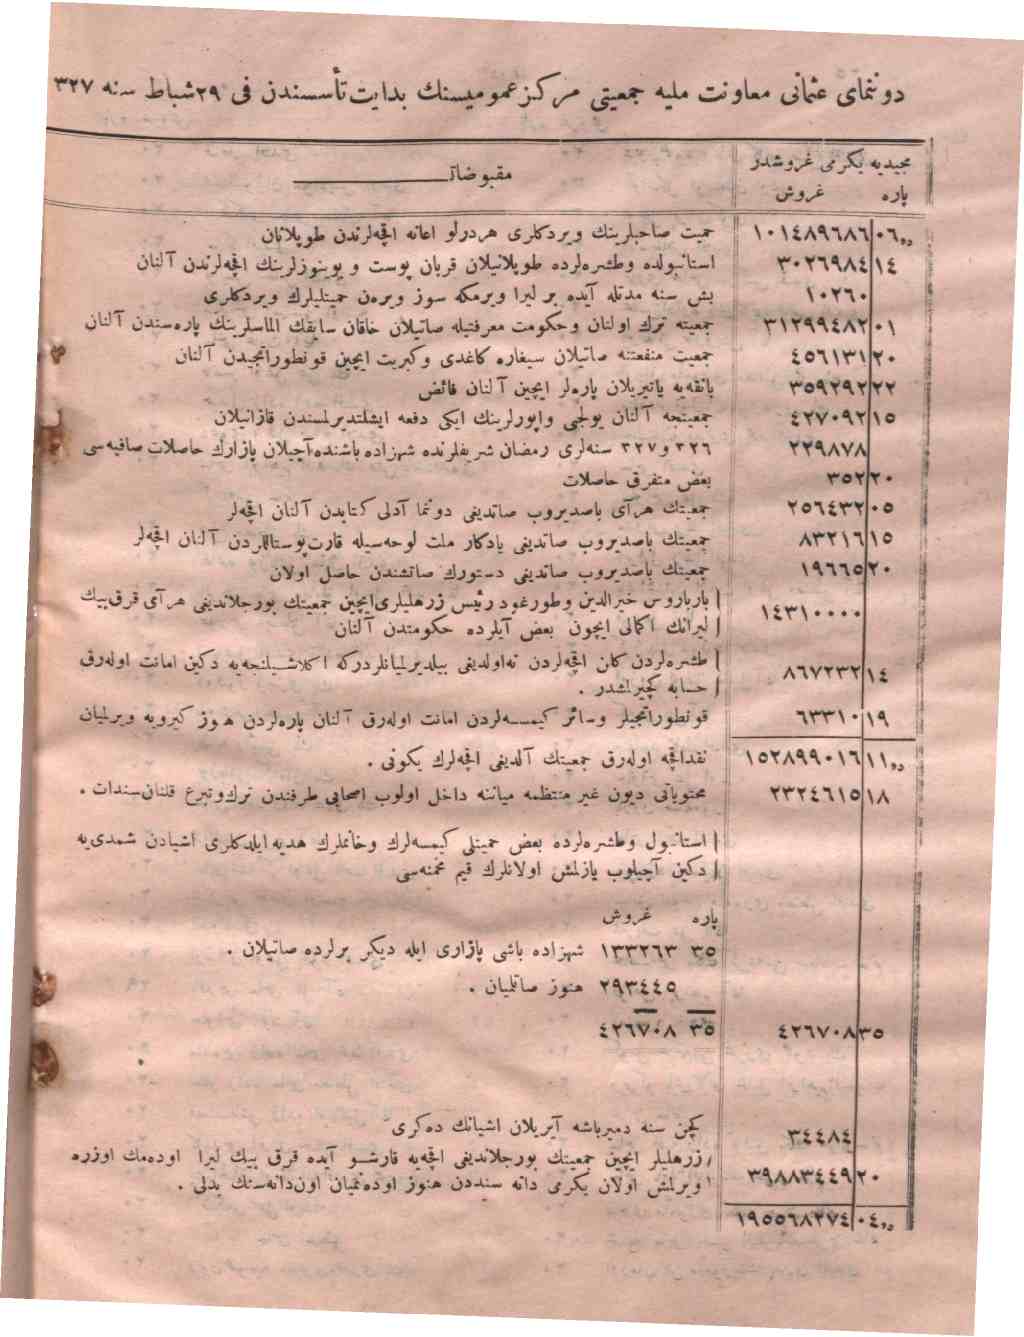 دوننمای عثمانی معاونت ملیه جمعیتی مرکز عمومیسنك بدایت تأسسندن فی ٢٩ شباط سنه ٣٢٧
مجیدیه یکرمی غروشدر
پاره غروش مقبوضات
٠٦ ١٠١٤٨٩٦٨٦ حمیت صاحبلرینك ویردکلری هردرلو اعانه اقچه‌لرندن طوپلانان
١٤ ٣٠٢٦٩٨٤ استانبولده وطشره‌لرده طوپلانیلان قربان پوست و بوینوزلرینك اقچه‌لرندن آلنان
١٠٢٦٠ بش سنه مدتله آیده بر لیرا ویرمکه سوز ویره‌ن حمیتلیلرك ویردکلری
٠١ ٣١٢٩٩٤٨٢ جمعیته ترك اولنان وحکومت معرفتیله صاتیلان خاقان سابقك الماسلرینك پاره‌سندن آلنان
٢٠ ٤٥٦١٣١ جمعیت منفعتنه صاتیلان سیغاره کاغدی وکبریت ایچین قونطوراتجیدن آلنان
٢٢ ٣٥٩٢٩٢ بانقه‌یه یاتیریلان پاره‌لر ایچین آلنان فائض
١٥ ٤٢٧٠٩٢ جمعیتجه آلنان یولجی واپورلرینك ایکی دفعه ایشلتدیرلمسندن قازانیلان
٢٢٩٨٧٨ ٣٢٦ و ٣٢٧ سنه‌لری رمضان شریفلرنده شهزاده باشنده آچیلان پازارك حاصلات صافیه‌سی
٢٠ ٣٥٢ بعض متفرق حاصلات
٠٥ ٢٥٦٤٣٢ جمعیتك هرآی باصدیروب صاتدیغی دوننما آدلی کتابدن آلنان اقچه‌لر
١٥ ٨٣٢١٦ جمعیتك باصدیروب صاتدیغی یادکار ملت لوحه‌سیله قارت‌پوستاللردن آلنان اقچه‌لر
٢٠ ١٩٦٦٥ جمعیتك باصدیروب صاتدیغی دستورك صاتشندن حاصل اولان
١٤٣١٠٠٠٠ بارباروس خیرالدین وطورغود رئیس زرهلیلری ایچین جمعیتك بورجلاندیغی هرآی قرق بیك
لیرانك اکمالی ایچون بعض آیلرده حکومتدن آلنان
١٤ ٨٦٧٢٣٢ طشره‌لردن کلن اقچه‌لردن نه‌اولدیغی بیلدیرلمیانلردرکه اکلاشیلنجه‌یه دکین امانت اوله‌رق
حسابه کچیرلمشدر .
١٩ ٦٣٣١٠ قونطوراتجیلر وسائر کیمسه‌لردن امانت اوله‌رق آلنان پاره‌لردن هنوز کیرویه ویرلمیان
١١ ١٥٢٨٩٩٠١٦ نقداقچه اوله‌رق جمعیتك آلدیغی اقچه‌لرك یکونی .
١٨ ٢٣٢٤٦١٥ محتویاتی دیون غیر منتظمه میاننه داخل اولوب اصحابی طرفندن ترك‌وتبرع قلنان سندات .
استانبول وطشره‌لرده بعض حمیتلی کیمسه‌لرك وخانملرك هدیه ایلدکلری اشیادن شمدی‌یه
دکین آچیلوب یازلمش اولانلرك قیم مخمنه‌سی
پاره غروش
٣٥ ١٣٣٢٦٣ شهزاده باشی پازاری ایله دیکر یرلرده صاتیلان .
٢٩٣٤٤٥ هنوز صاتلمیان .
٣٥ ٤٢٦٧٠٨ ٣٥ ٤٢٦٧٠٨
٣٤٤٨٤ کچن سنه دمیرباشه آیریلان اشیانك ده‌کری
٢٠ ٣٩٨٨٣٤٤٩ زرهلیلر ایچین جمعیتك بورجلاندیغی اقچه‌یه قارشو آیده قرق بیك لیرا اوده‌مك اوزره
ویرلمش اولان یکرمی دانه سنددن هنوز اوده‌نمیان اون‌دانه‌سنك بدلی .
٠٤ ١٩٥٥٦٨٢٧٤